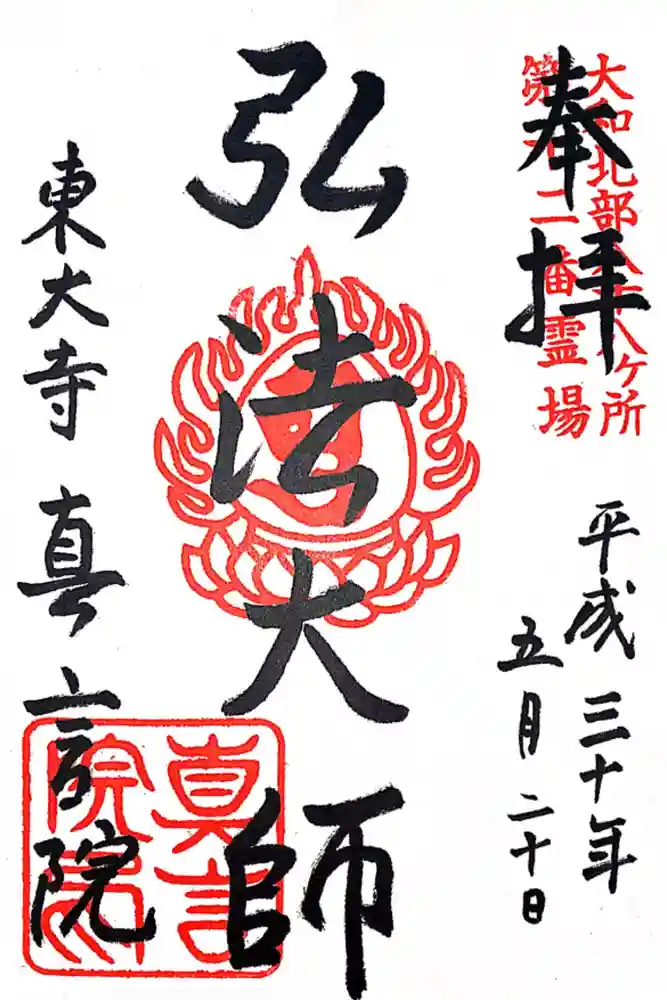 大和北部八十八ヶ所
第十二番霊場
奉拝
平成三十年
五月二十日
弘法大師
東大寺 真言院
真言
院印